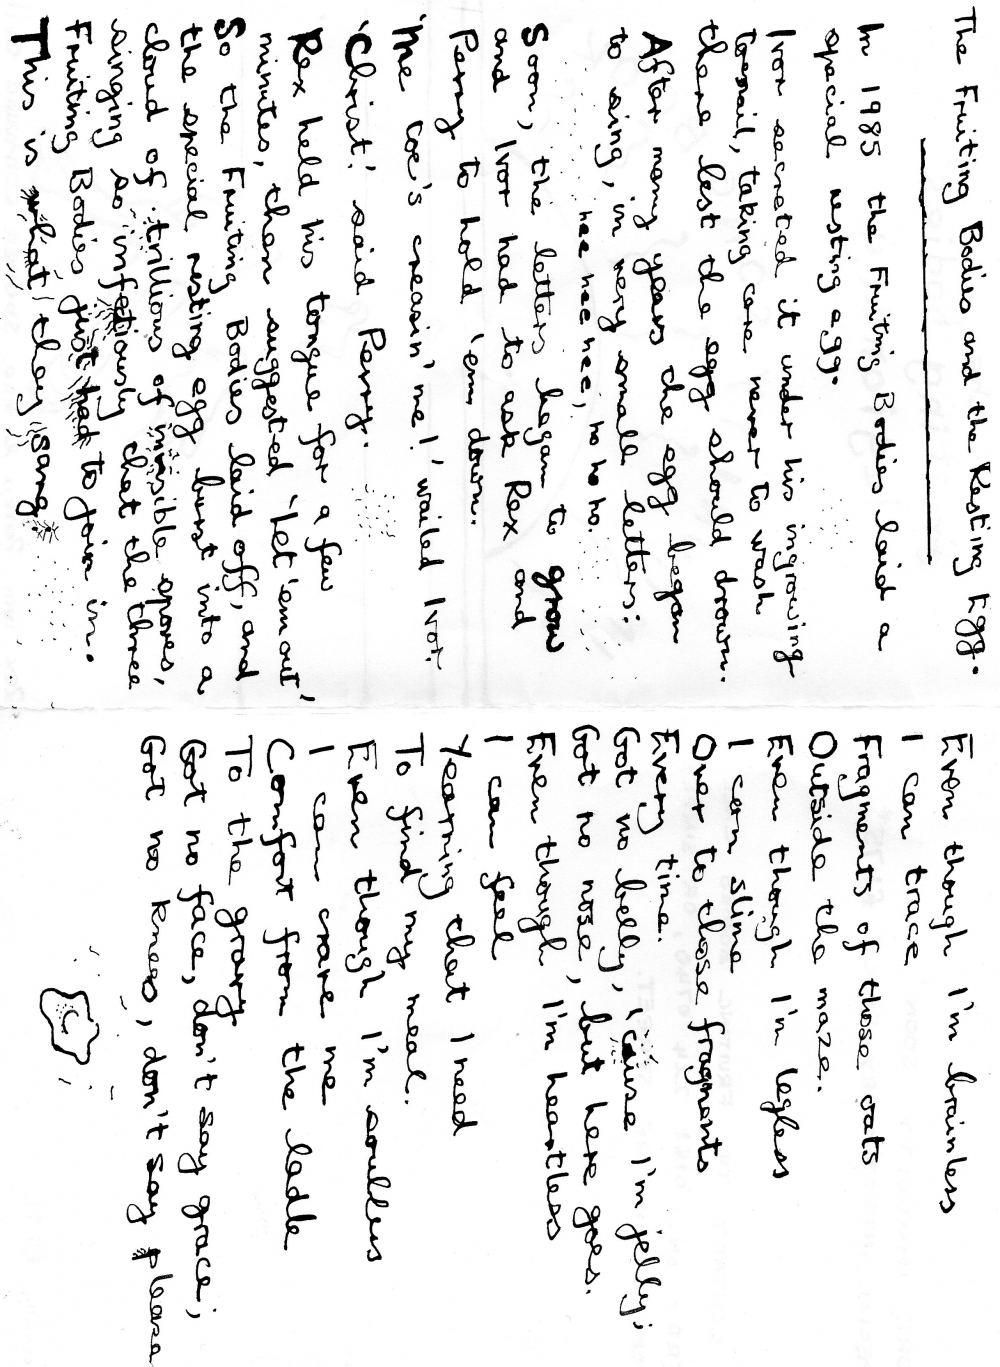 The Fruiting Bodies and the Resting Egg.
In 1985 the Fruiting Bodies laid a
special resting egg.
Ivor secreted it under his ingrowing
toenail, taking care never to wash
there lest the egg should drown.
After many years the egg began
to sing, in very small letters:
hee hee hee, ho ho ho.
Soon, the letters began to grow
and Ivor had to ask Rex and
Perry to hold 'em down.
'Me toe's creasin' me!' wailed Ivor.
'Christ!' said Perry.
Rex held his tongue for a few
minutes, then suggested 'Let 'em out',
So the Fruiting Bodies laid off, and
the special resting egg burst into a
cloud of trillions of invisible spores,
singing so infectiously that the three
Fruiting Bodies just had to join in.
This is what they sang
Even though I'm brainless
I can trace
Fragments of those oats
Outside the maze.
Even though I'm legless
I can slime
Over to those fragments
Every time.
Got no belly, 'cause I'm jelly;
Got no nose, but here goes.
Even though I'm heartless
I can feel
Yearning that I need
To find my meal.
Even though I'm soulless
I can crave me
Comfort from the ladle
To the gravy
Got no face, don't say grace;
Got no knees, don't say please